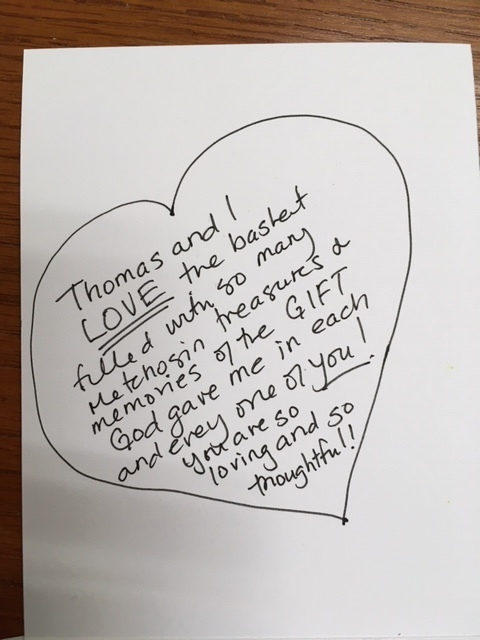 Thomas and I
LOVE the basket
filled with so many
Metchosin treasures &
memories of the GIFT
God gave me in each
and evey one of you!
You are so
loving and so
thoughtful!!